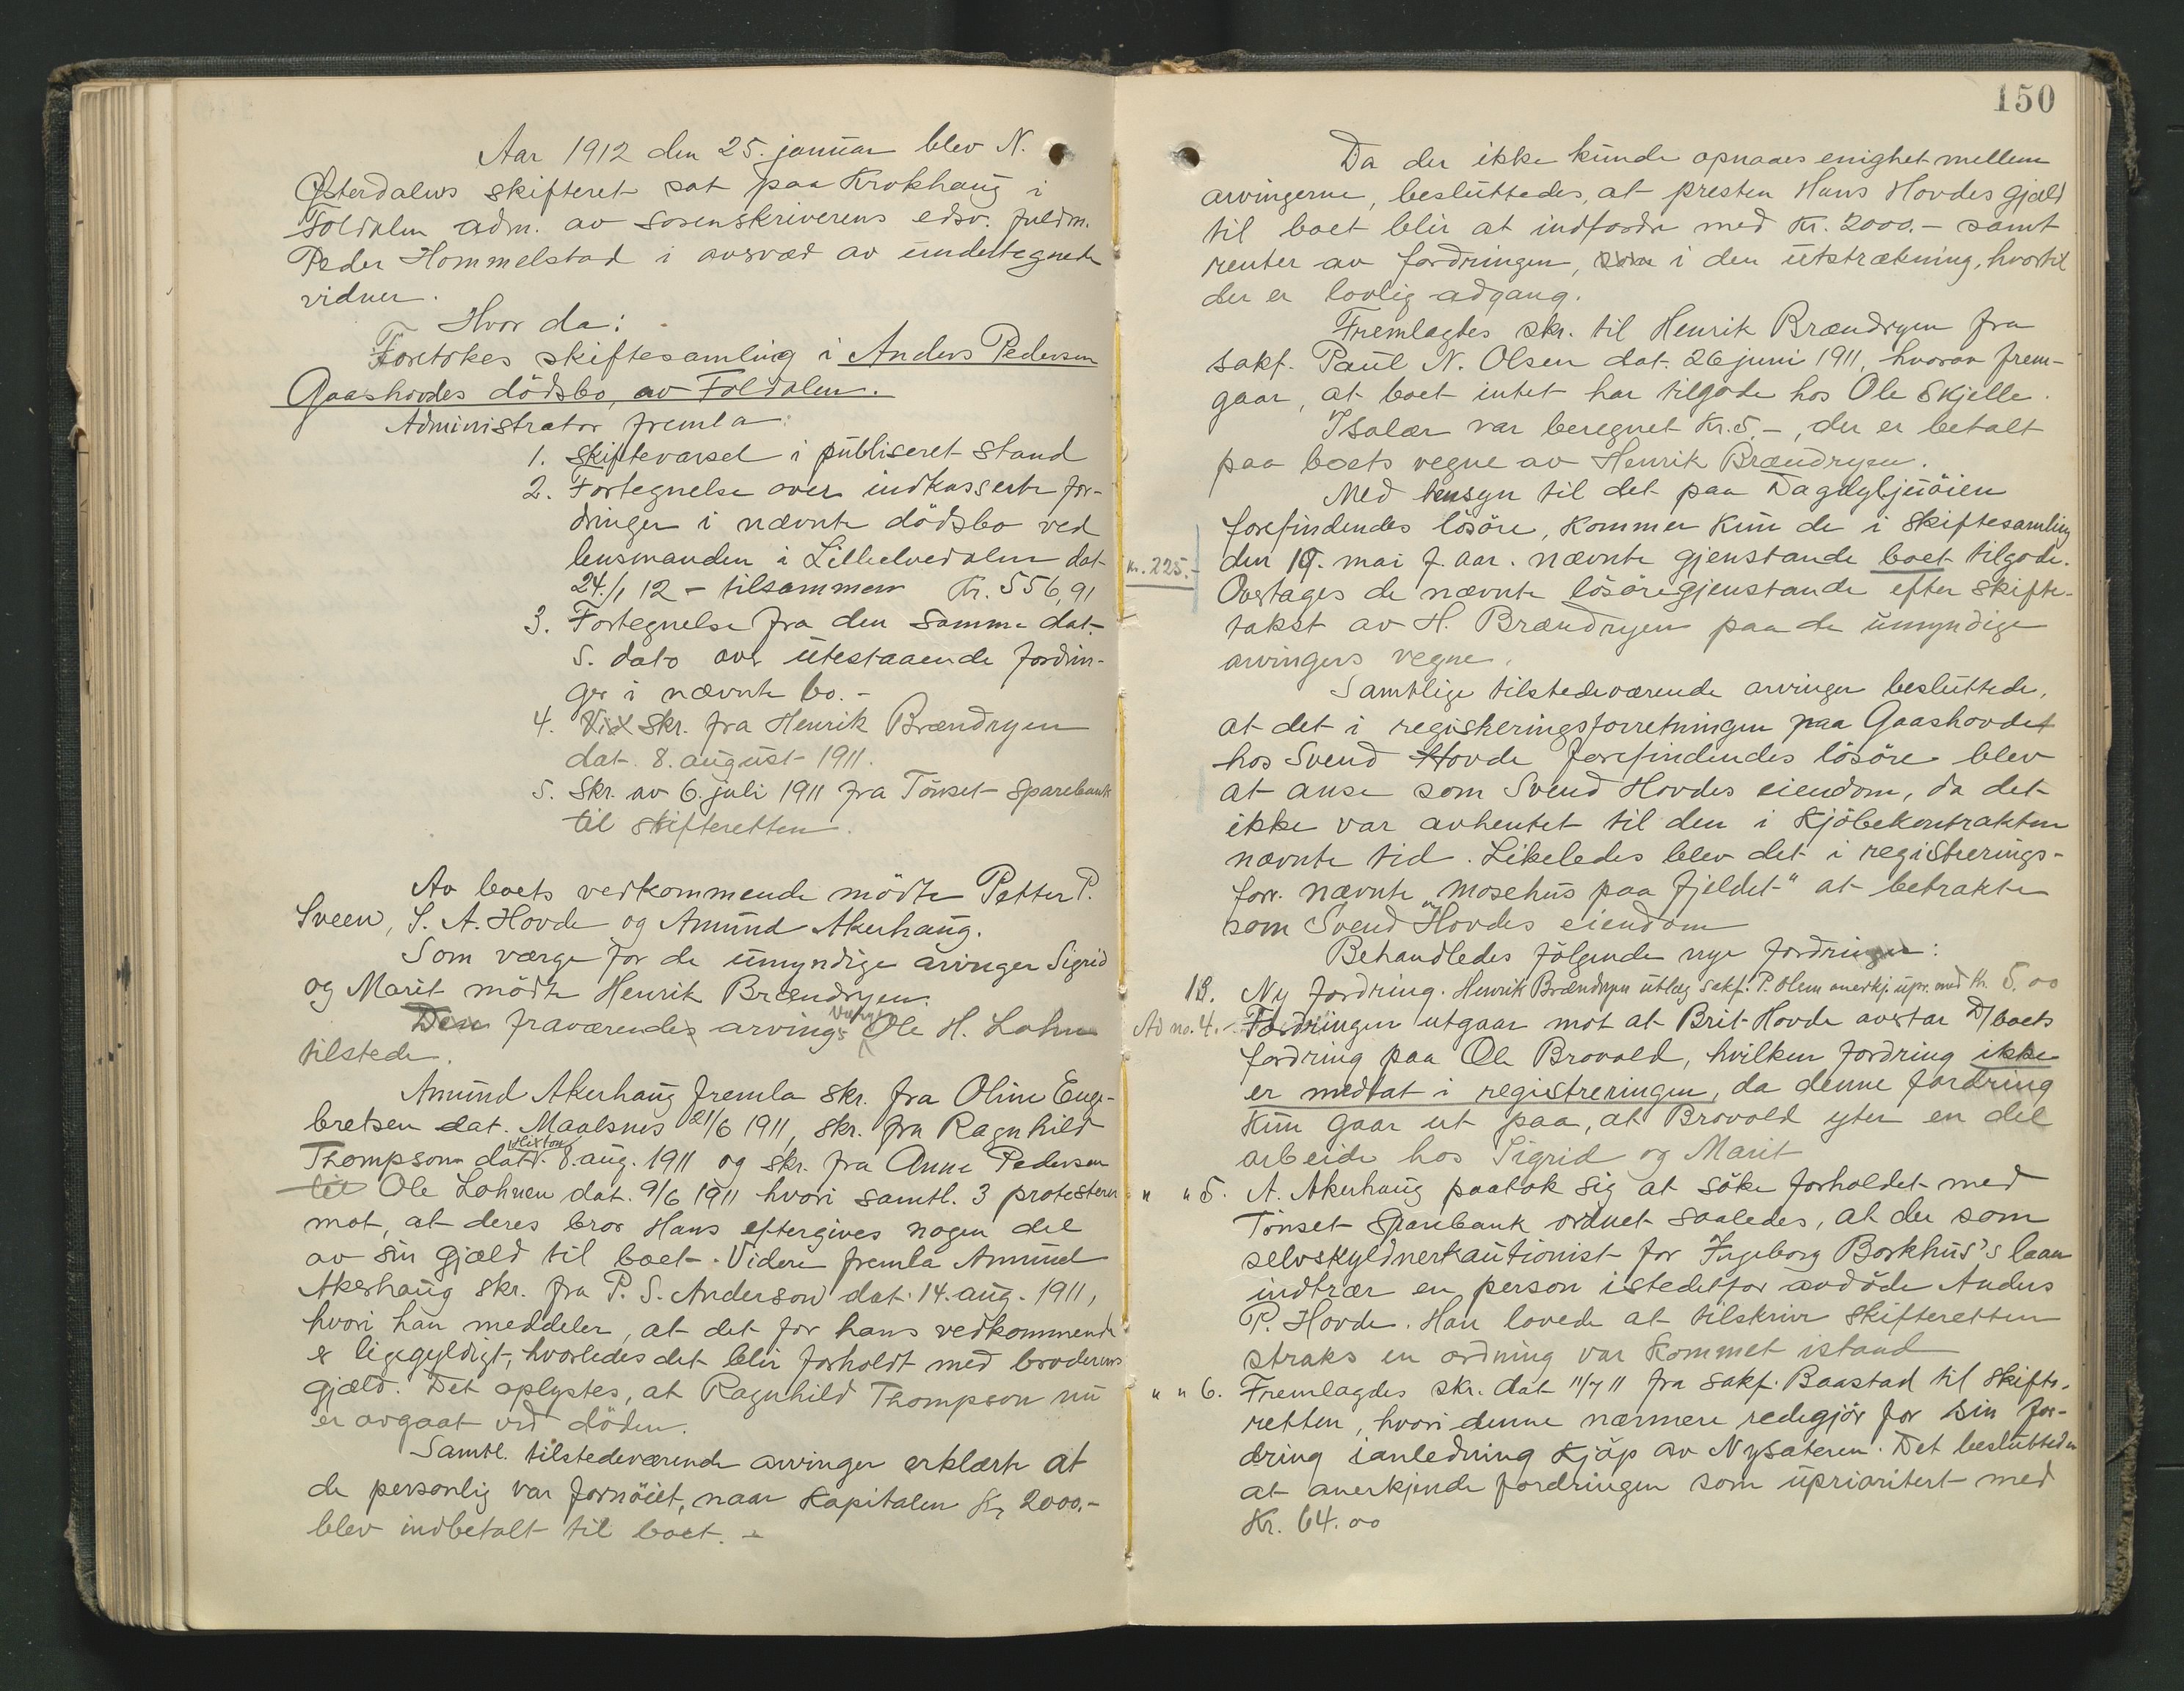 Aar 1912 den 25. januar blev N.
Østerdalens skifteret sat paa Krokhaug i
Foldalen adm. av sorenskriverens edsv. fuldm.
Peder Hommelstad i overvær av undertegnede
vidner.
Hvor da:
Foretokes skiftesamling i Anders Pedersen
Gaashovdes dödsbo, av Foldalen.
Administrator fremla:
1. Skiftevarsel i publiseret stand
2. Fortegnelse over indkasserte for-
dringer i nævnte dödsbo ved
lensmanden i Lilleelvedalen dat.
24/1 12 - tilsammen Kr. 556,91
3. Fortegnelse fra den samme dat.
s. dato over utestaaende fordrin-
ger i nævnte bo. -
4. Skr. fra Henrik Brændryen
dat. 8. august 1911.
5. Skr. av 6. juli 1911 fra Tönset Sparebank
til skifteretten.
Av boets vedkommende mödte Petter P.
Sveen, S. A. Hovde og Amund Akerhaug.
Som værge for de umyndige arvinger Sigrid
og Marit mödte Henrik Brændryen.
Den fraværendes arvings værge Ole H. Lohn
tilstede.
Amund Akerhaug fremla skr. fra Oline Enge-
bretsen dat. Maalsnes 21/6 1911, skr. fra Ragnhild
Thompson dat. Hixton 8. aug. 1911 og skr. fra Anne Pedersen
til Ole Lohnen dat. 9/6 1911 hvori samtl. 3 protesterer
mot, at deres bror Hans eftergives nogen del
av sin gjæld til boet. Videre fremla Amund
Akerhaug skr. fra P. S. Anderson dat. 14. aug. 1911,
hvori han meddeler, at det for hans vedkommende
er ligegyldigt, hvorledes det blir forholdt med broderens
gjæld. Det oplystes, at Ragnhild Thompson nu
er avgaat ved döden.
Samtl. tilstedeværende arvinger erklærte at
de personlig var fornöiet, naar kapitalen Kr. 2000,-
blev indbetalt til boet. -
150
Da der ikke kunde opnaaes enighet mellem
arvingerne, besluttedes, at presten Hans Hovdes gjæld
til boet blir at indfordre med Kr. 2000.- samt
renter av fordringen, i den utstrækning, hvortil
der er lovlig adgang.
Fremlagtes skr. til Henrik Brændryen fra
sakf. Paul N. Olsen dat. 26 juni 1911, hvorav frem-
gaar, at boet intet har tilgode hos Ole Skjelle.
I salær var beregnet Kr. 5,-, der er betalt
paa boets vegne av Henrik Brændryen.
Med hensyn til det paa
forefindendes lösöre, kommer kun de i skiftesamling
kr. 225.- den 19. mai f. aar. nævnte gjenstande boet tilgode.
Overtages de nævnte lösöregjenstande efter skifte-
takst av H. Brændryen paa de umyndige
arvingers vegne.
Samtlige tilstedeværende arvinger besluttede,
at det i registreringsforretningen paa Gaashovdet
hos Svend Hovde forefindendes lösöre blev
at anse som Svend Hovdes eiendom, da det
ikke var avhentet til den i kjöbekontrakten
nævnte tid. Likeledes blev det i registrerings-
forr. nævnte "mosehus paa fjeldet" at betrakte
som Svend Hovdes eiendom
Behandledes fölgende nye fordringer:
18. Ny fordring. Henrik Brændryen utlæg sakf. P. Olsen anerkj. upr. med Kr. 5.00
Ad no. 4. Fordringen utgaar mot at Brit Hovde avstar D/ boets
fordring paa Ole Brovold, hvilken fordring ikke
er medtat i registreringen, da denne fordring
kun gaar ut paa, at Brovold yter en del
arbeide hos Sigrid og Marit
" " 5. A. Akerhaug paatok sig at söke forholdet med
Tönset Sparebank ordnet saaledes, at der som
selvskyldnerkautionist for Ingeborg Borkhus's laan
indtrær en person istedetfor avdöde Anders
P. Hovde. Han lovede at tilskrive skifteretten
straks en ordning var kommet istand
" " 6. Fremlagdes skr. dat 11/7 11 fra sakf. Baastad til skifte-
retten, hvori denne nærmere redegjör for sin for-
dring i anledning kjöp av Nysæteren. Det besluttedes
at anerkjende fordringen som uprioritert med
Kr. 64.00